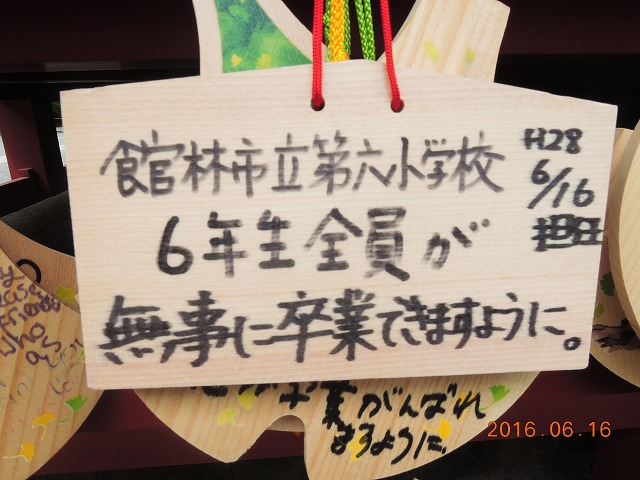 館林市立第六小学校
6年生全員が
無事に卒業できますように。
H28
6/16
担任
業がんばれ
ますように
2016.06.16